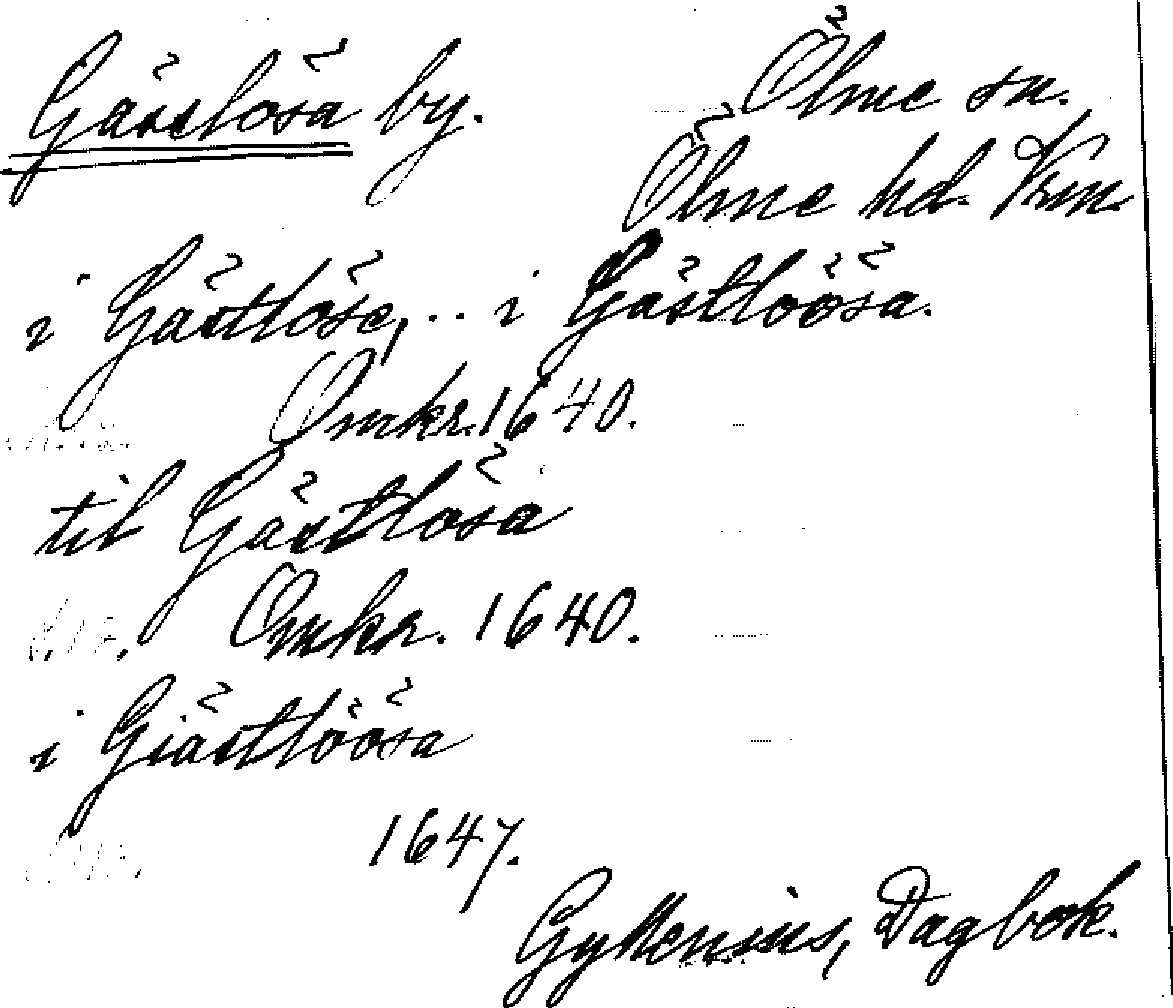 Gäselösa by. Ölme sn.
Ölme hd. Vrm.
i Gästlöse, .. i Gästlöösa.
Omkr. 1640.
til Gästlösa
Omkr. 1640.
i Giästlöösa
1647.
Gyllenius, Dagbok.